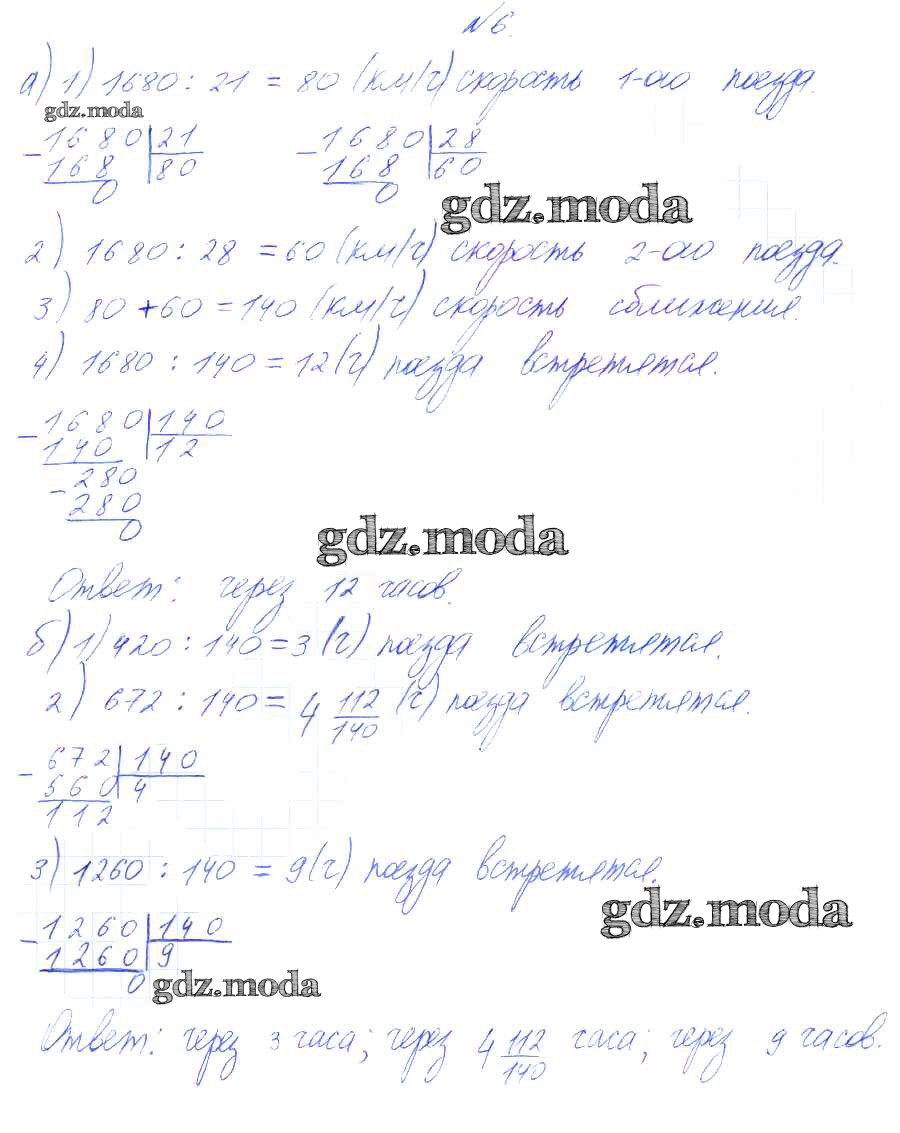 №6.
а) 1) 1680 : 21 = 80 (км/ч) скорость 1-ого поезда.
gdz.moda
- 1680 | 21 - 1680 | 28
168 80 168 60
0 0
gdz.moda
2) 1680 : 28 = 60 (км/ч) скорость 2-ого поезда.
3) 80 + 60 = 140 (км/ч) скорость сближения.
4) 1680 : 140 = 12 (ч) поезда встретятся.
- 1680 | 140
140 12
- 280
280
0
gdz.moda
Ответ: через 12 часов.
б) 1) 420 : 140 = 3 (ч) поезда встретятся.
2) 672 : 140 = 4 112/140 (ч) поезда встретятся.
- 672 | 140
560 4
112
3) 1260 : 140 = 9 (ч) поезда встретятся.
gdz.moda
- 1260 | 140
1260 9
0
gdz.moda
Ответ: через 3 часа; через 4 112/140 часа; через 9 часов.